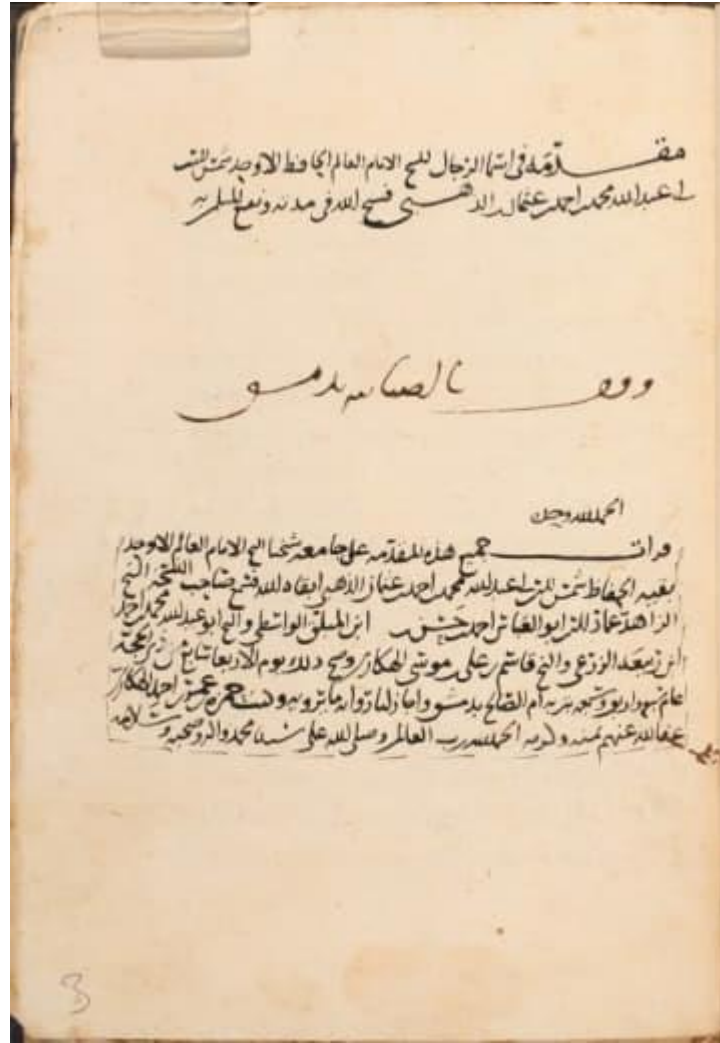 مقدمة في اسما الرجال للشيخ الامام العالم الحافظ الاوحد شمس الدين
ابي عبد الله محمد بن احمد بن عثمان الذهبي فسح الله في مدته ونفع المسلمين به
وقف بالضيائيه بدمشق
الحمد لله وحده
قرات جميع هذه المقدمه على جامعها شيخنا الشيخ الامام العالم الاوحد
بقيه الحفاظ شمس الدين ابي عبد الله محمد بن احمد بن عثمان الذهبي ابقاه الله فسمع صاحب النسخه الشيخ
الزاهد عماد الدين ابو العباس احمد بن الواسطي والشيخ ابو عبد الله محمد بن احمد
ابن الزرعي والشيخ قاسم بن علي بن موسى الهكاري وصح ذلك يوم الاربعا ذي الحجة
عام بتربه ام الصالح بدمشق واجاز لنا روايه ما يرويه وكتب احمد الهكاري
عفا الله عنهم بمنه وكرمه الحمد لله رب العالمين وصلى الله على سيدنا محمد واله وصحبه وسلامه
3